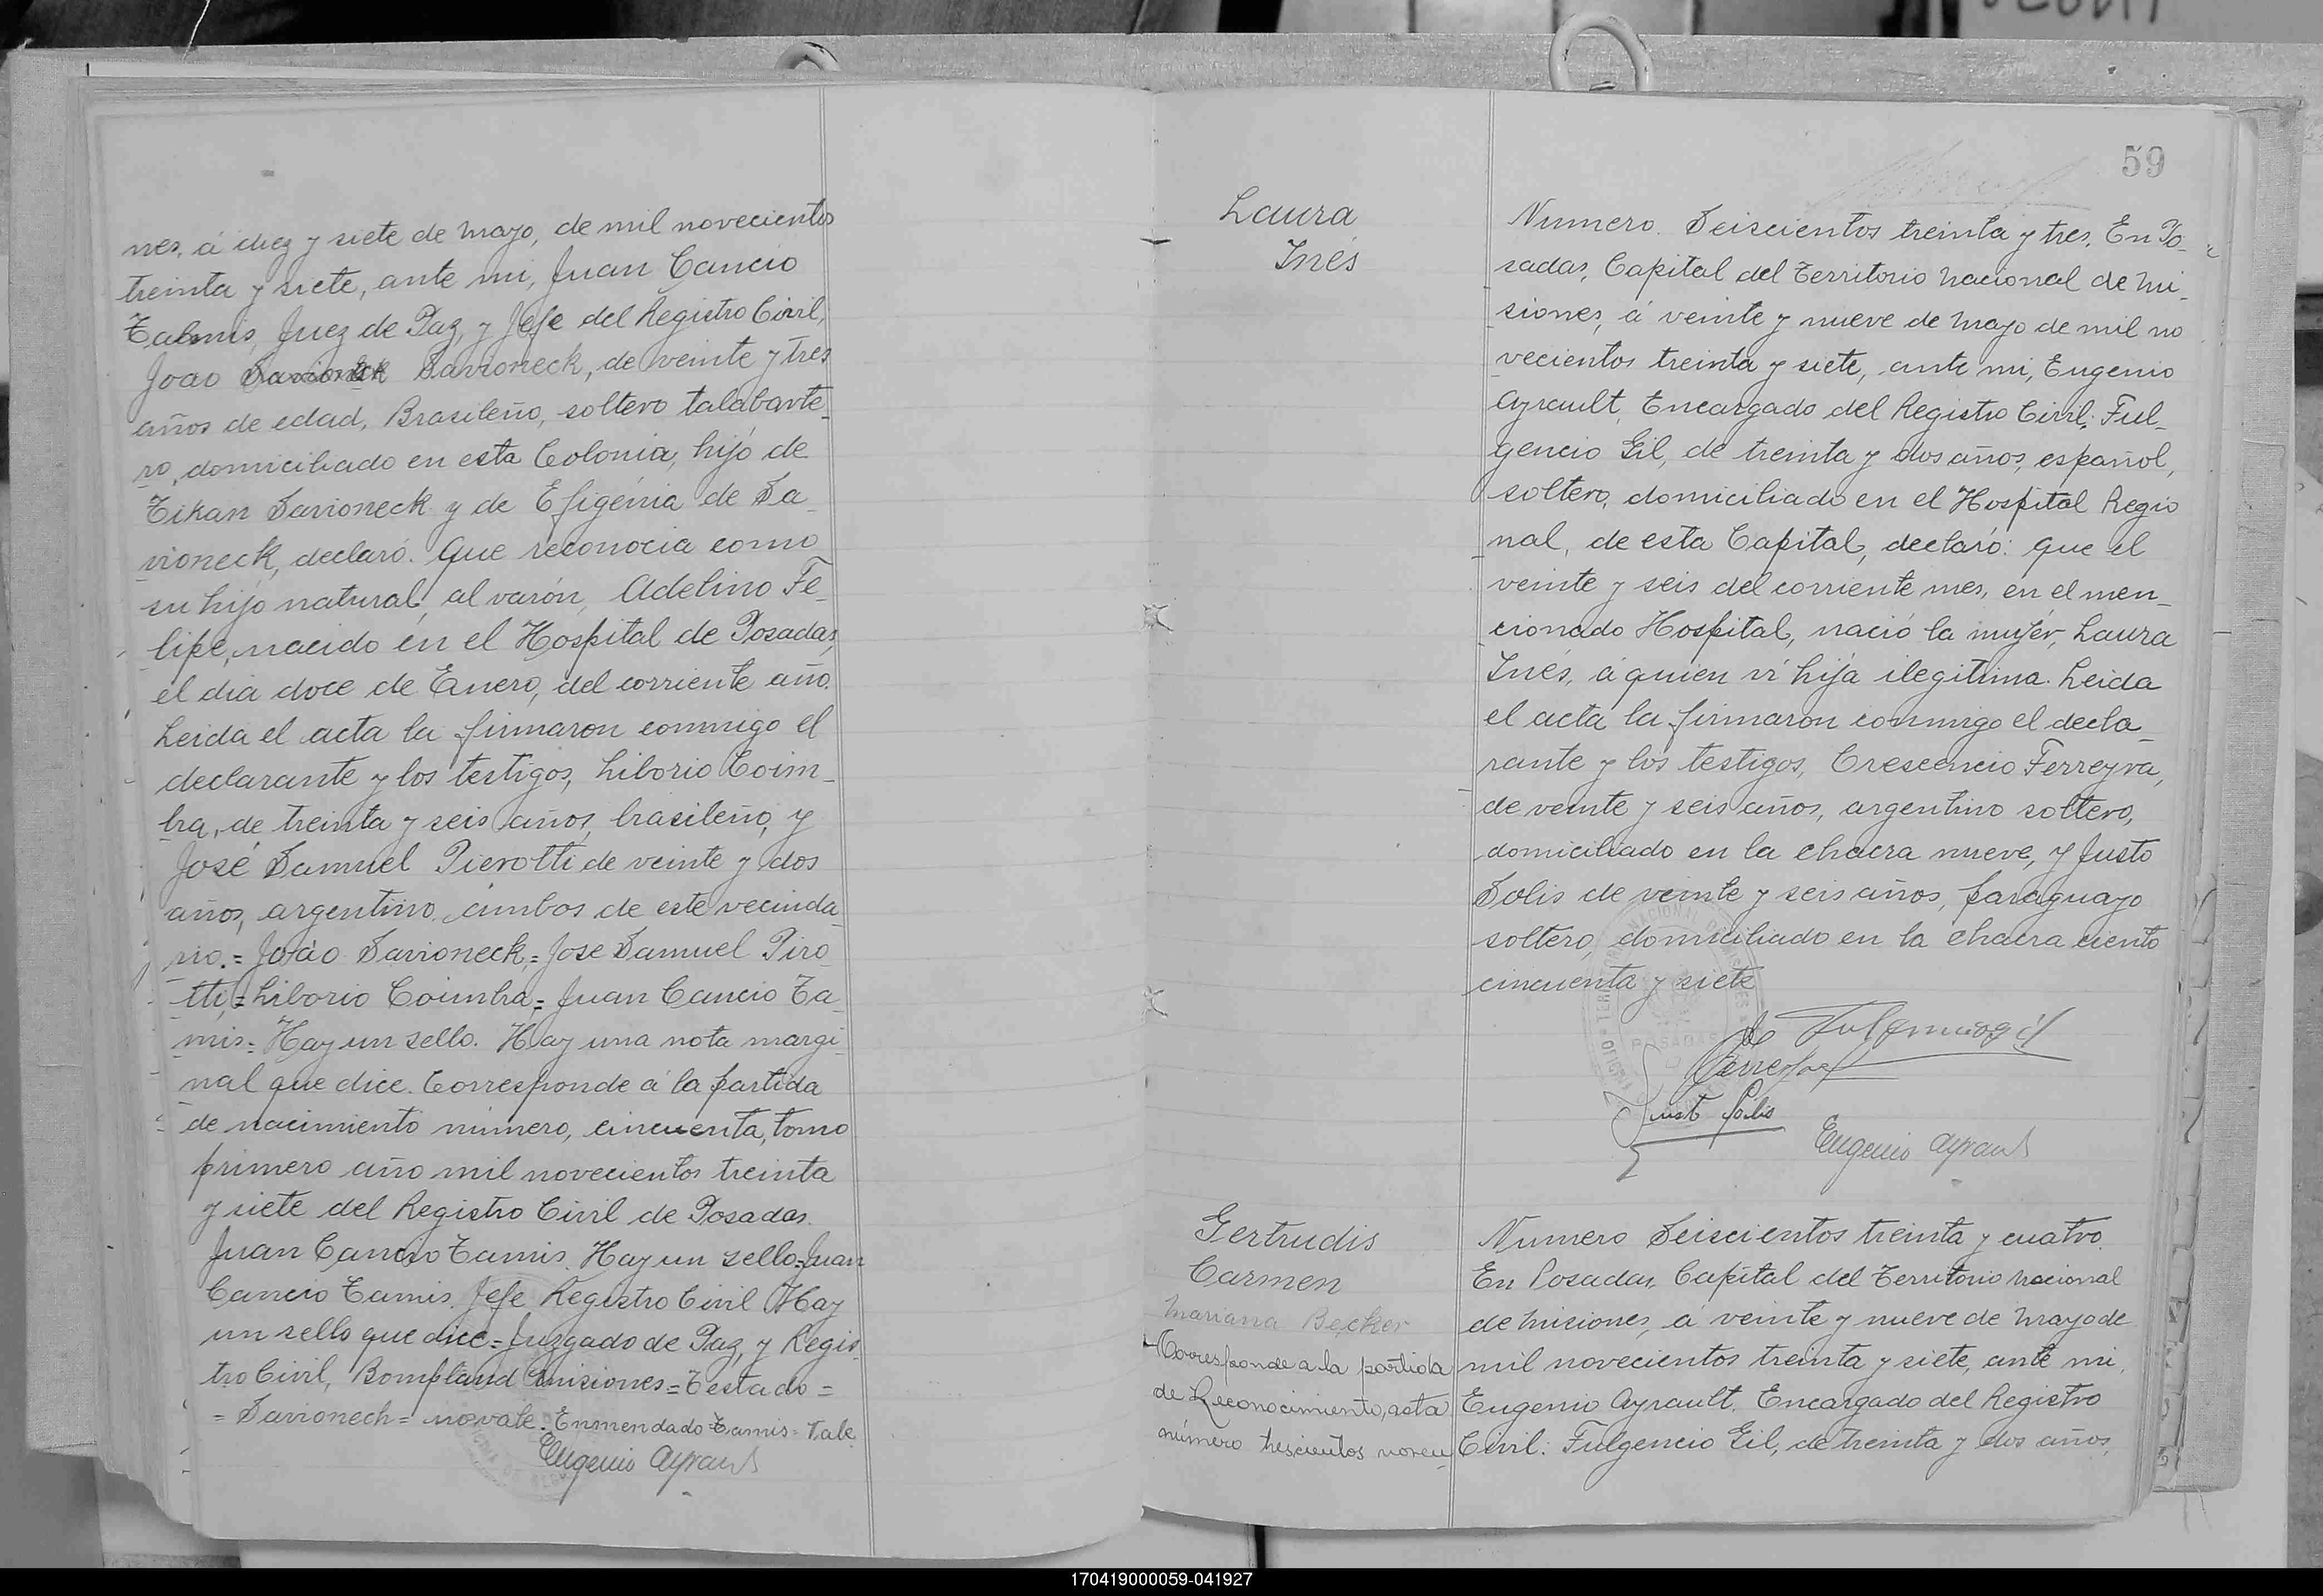 nes, á diez y siete de mayo, de mil novecientos
treinta y siete, ante mi, Juan Cancio
Tamis, Juez de Paz, y Jefe del Registro Civil,
Joao Savioneck Savioneck, de veinte y tres
años de edad, Brasileño, soltero talabarte_
ro, domiciliado en esta Colonia, hijo de
Tikan Savioneck y de Efigénia de Sa_
vioneck, declaró. Que reconocia como
su hijo natural, al varón, Adelino Fe_
lipe, nacido en el Hospital de Posadas,
el dia doce de Enero, del corriente año.
Leida el acta la firmaron conmigo el
declarante y los testigos, Liborio Coim_
bra, de treinta y seis años, brasileño, y
José Samuel Pierotti de veinte y dos
años, argentino, ambos de este vecinda_
rio.= Joáo Savioneck,= Jose Samuel Piro_
tti,= Liborio Coimbra,= Juan Cancio Ta_
mis= Hay un sello. Hay una nota margi_
nal que dice. Corresponde á la partida
de nacimiento número, cincuenta, tomo
primero año mil novecientos treinta
y siete del Registro Civil de Posadas.
Juan Cancio Tamis. Hay un sello= Juan
Cancio Tamis. Jefe Registro Civil Hay
un sello que dice= Juzgado de Paz, y Regis_
tro Civil, Bompland Misiones= Testado=
= Savionech= no vale. Enmendado Tamis= Vale
Eugenio Ayrault
59
Laura
Inés
Numero. Seiscientos treinta y tres. En Po_
sadas, Capital del Territorio Nacional de Mi_
siones, á veinte y nueve de Mayo de mil no
vecientos treinta y siete, ante mi, Eugenio
Ayrault, Encargado del Registro Civil: Ful_
gencio Gil, de treinta y dos años, español,
soltero, domiciliado en el Hospital Regio
nal, de esta Capital, declaró: que el
veinte y seis del corriente mes, en el men_
cionado Hospital, nació la mujer, Laura
Inés, á quien ví hija ilegitima. Leida
el acta la firmaron conmigo el decla_
rante y los testigos, Crescencio Ferreyra,
de veinte y seis años, argentino soltero,
domiciliado en la chacra nueve, y Justo
Solis de veinte y seis años, paraguayo
soltero, domiciliado en la chacra ciento
cincuenta y siete
Fulgencio Gil
Ferreyra
Justo Solis
Eugenio Ayrault
POSADAS
Gertrudis
Carmen
Mariana Becker
Corresponde a la partida
de Reconocimiento, acta
número trescientos noven_
Numero Seiscientos treinta y cuatro.
En Posadas, Capital del Territorio Nacional
de Misiones, á veinte y nueve de Mayo de
mil novecientos treinta y siete, ante mi,
Eugenio Ayrault, Encargado del Registro
Civil: Fulgencio Gil, de treinta y dos años,
170419000059-041927